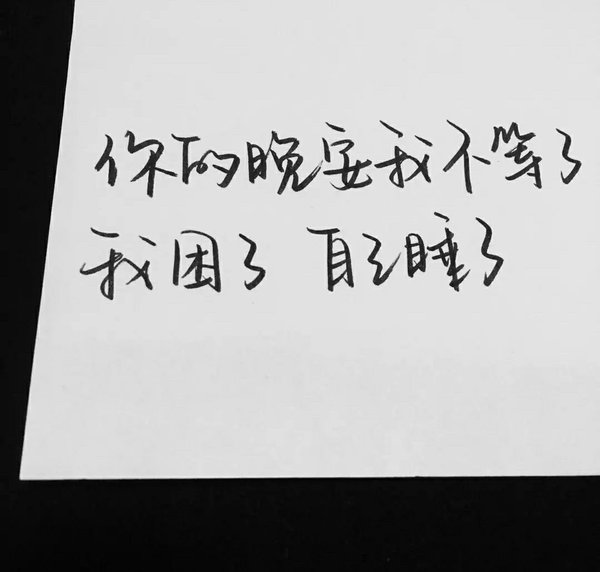 你的晚安我不等了
我困了 自己睡了